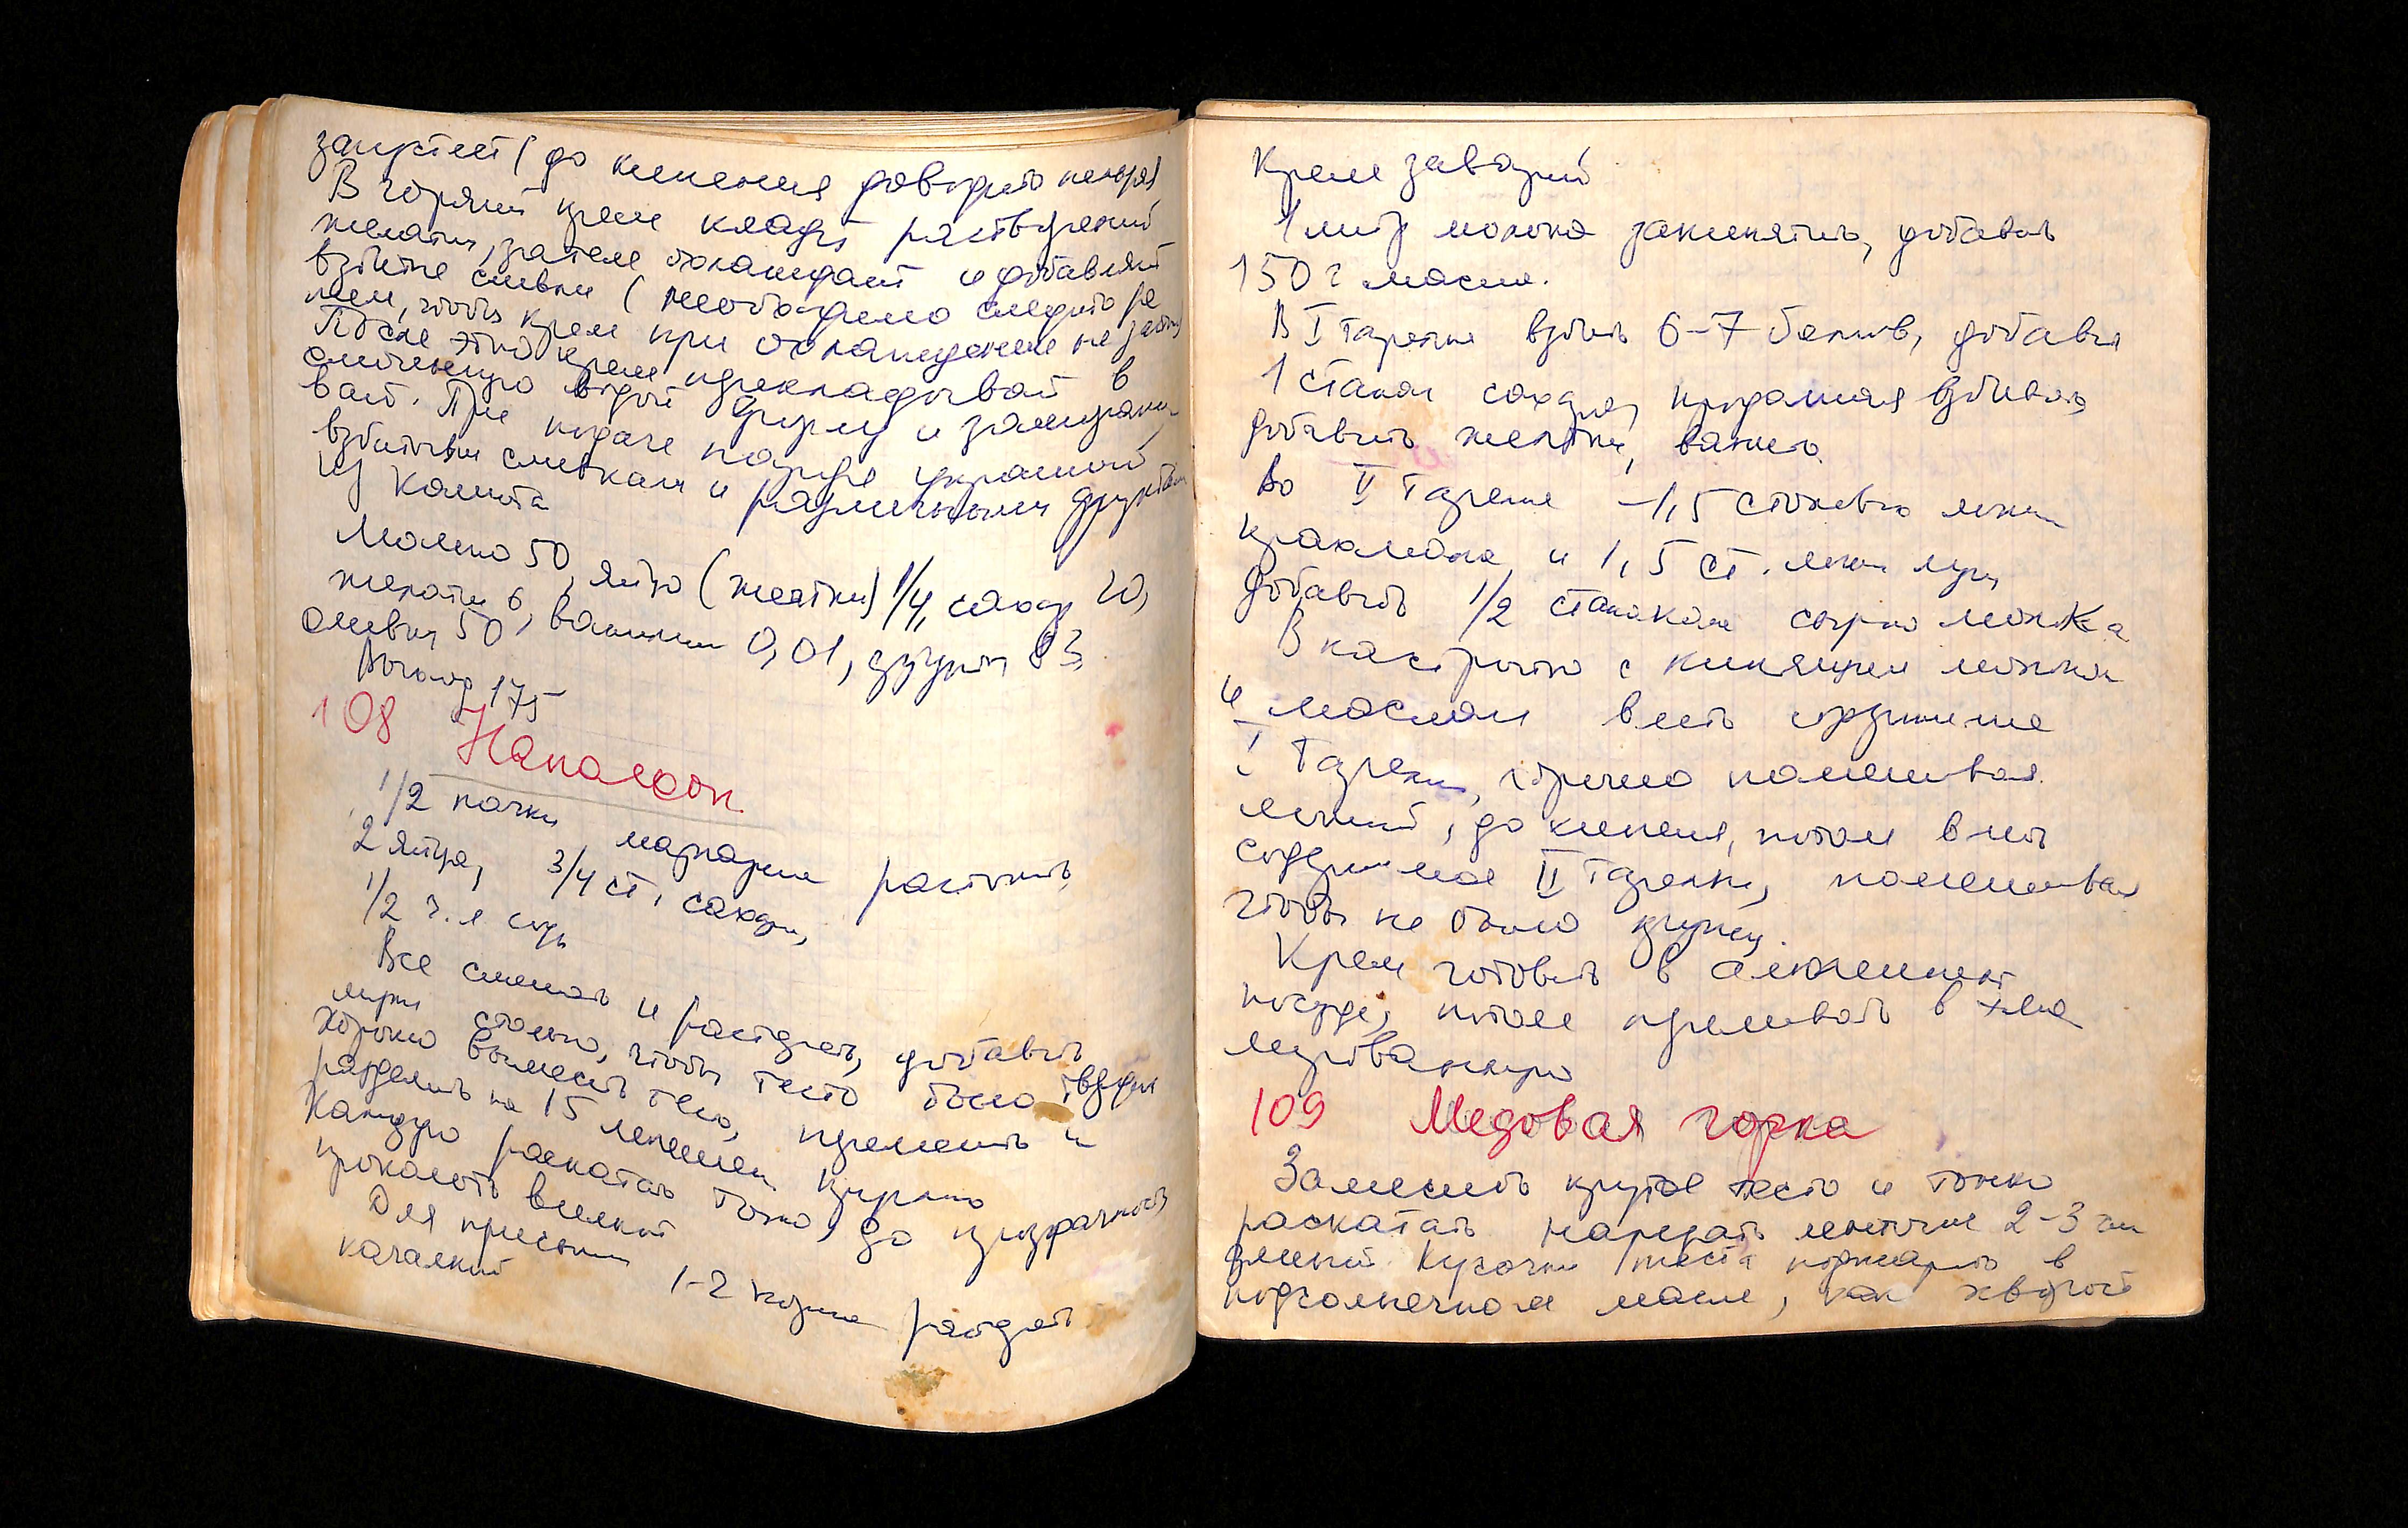 загустеет (до кипения доводить нельзя)
В горячий крем кладут растворенный
желатин, затем охлаждают и добавляют
взбитые сливки (необходимо следить за
тем, чтобы крем при охлаждении не застыл)
После этого крем перекладывают в
смоченную водой форму и замораживают.
При подаче пломбир украшают
взбитыми сливками и различными фруктами
из компота
Молоко 50, яйцо (желтки) 1/4, сахар 20,
желатин 6, ванилин 0,01, фрукты 83,
сливки 50,
Выход 175
108 Наполеон
1/2 пачки маргарина растопить
2 яйца, 3/4 ст. сахара,
1/2 ч.л соды
Все смешать и растереть, добавить
муки столько, чтобы тесто было твердым
хорошо вымесить тесто, перемесить и
разделить на 15 лепешек
Каждую раскатать тонко, до прозрачности
проколоть вилкой
Для присыпки 1-2 коржа растереть
качалкой
Крем заварной
1 литр молока закипятить, добавить
150 г масла.
В I тарелке взбить 6-7 белков, добавить
1 стакан сахара, продолжая взбивать,
добавить желтки, ванилин
Во II тарелке -1,5 столовых ложки
крахмала и 1,5 ст. ложки муки,
добавить 1/2 стакана сырого молока
В кастрюлю с кипящим молоком
и маслом влить содержимое
I тарелки, хорошо помешивая
ложкой, до кипения, потом влить
содержимое II тарелки, помешивая
чтобы не было крупки.
Крем готовить в алюминиевой
посуде, потом переливать в эма
лированную
109 Медовая горка
Замесить крутое тесто и тонко
раскатать нарезать ленточки 2-3 см
длиной. Кусочки теста поджарить в
подсолнечном масле, как хворост